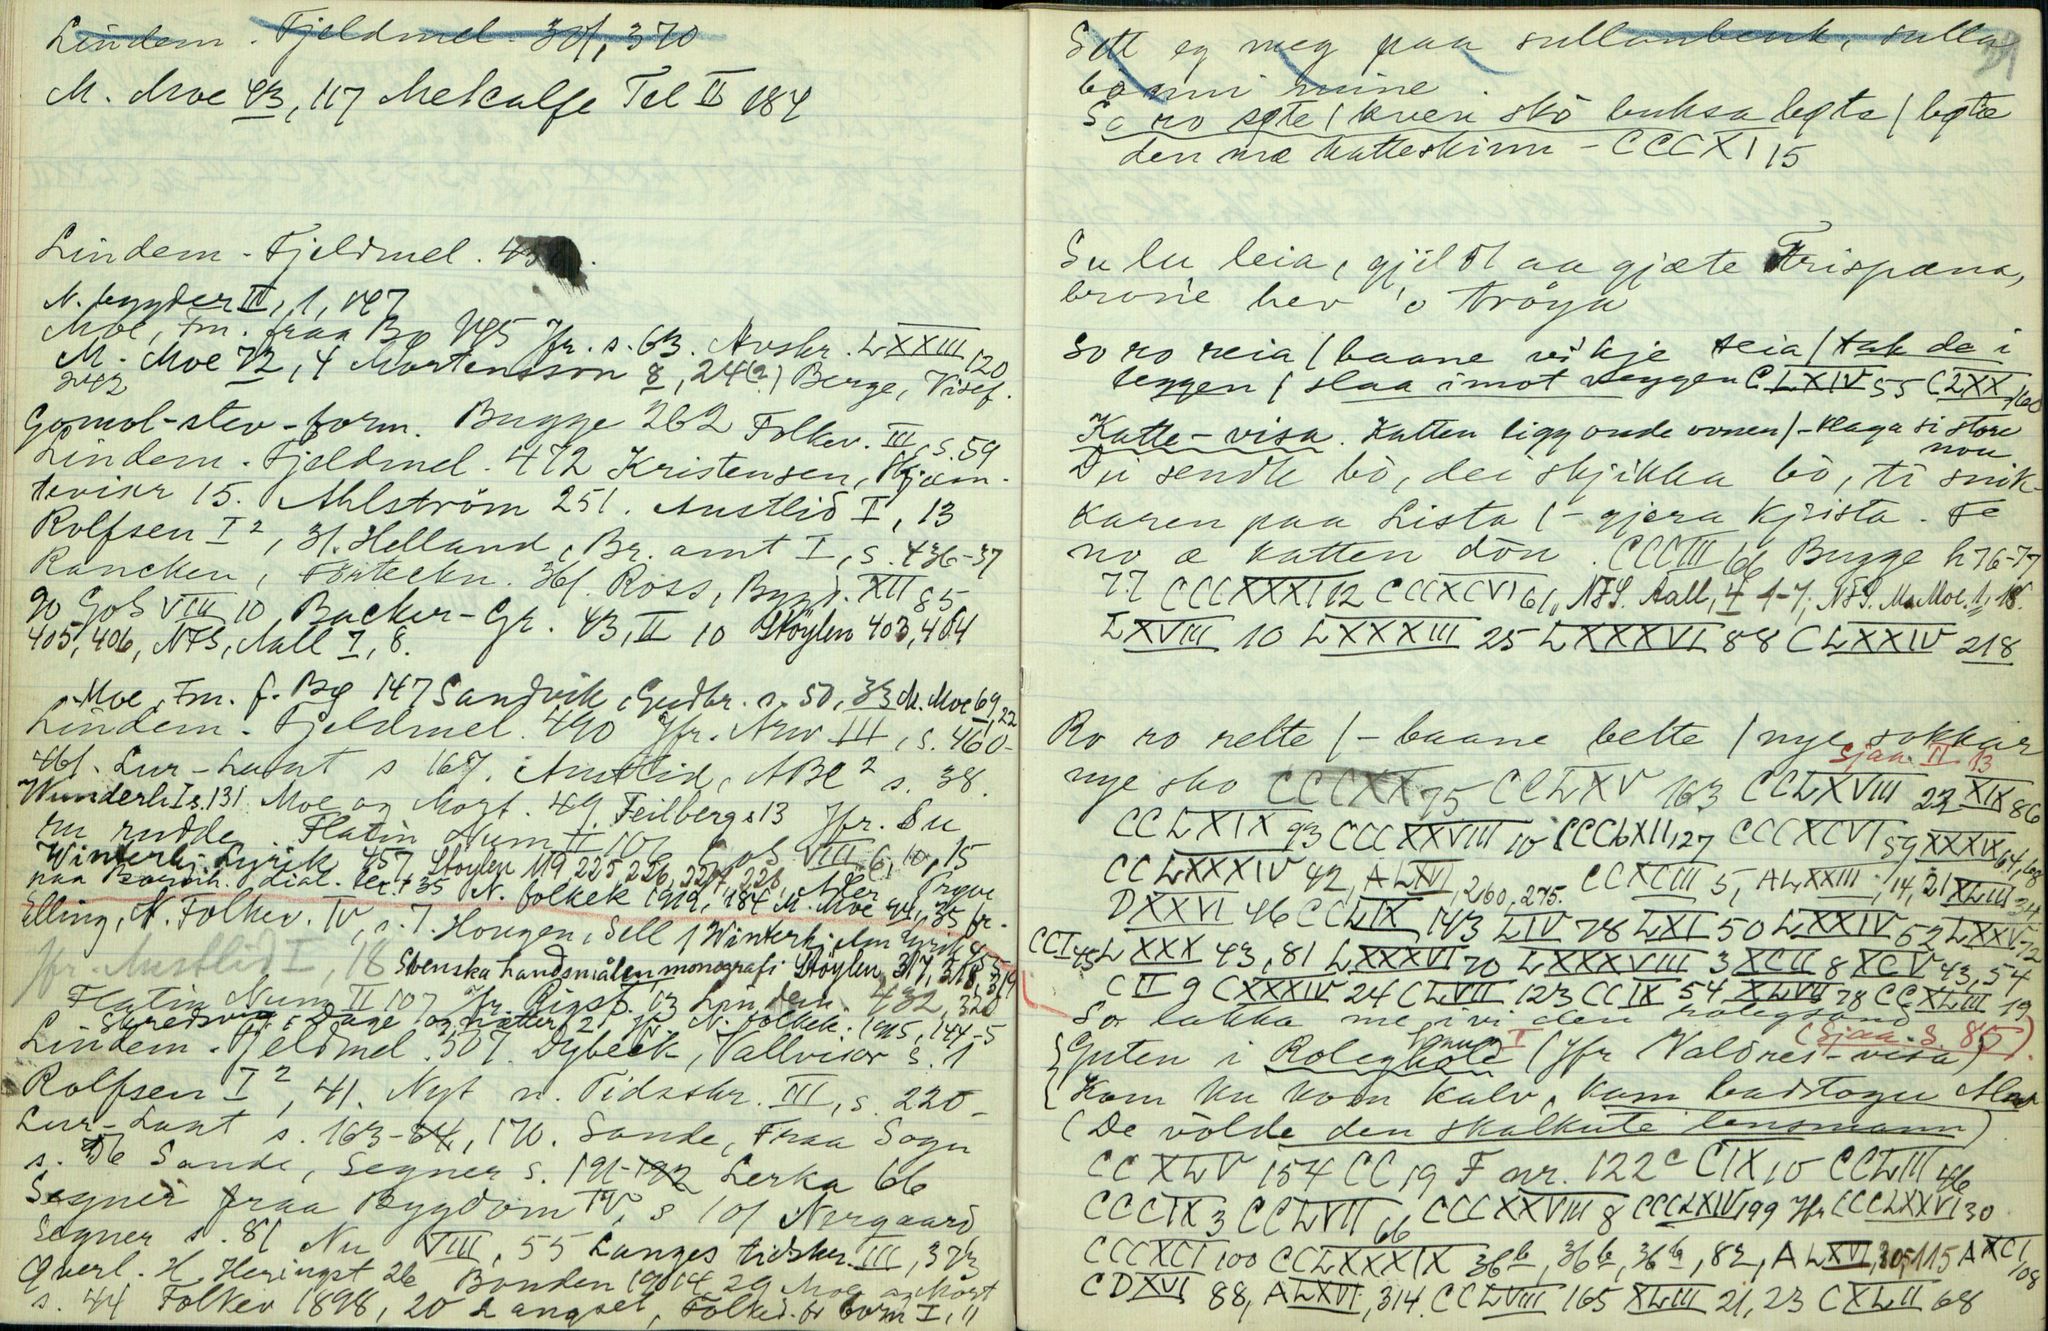 Lindem. Fjeldmel. 301, 370
M. Moe 43, 117 Metcalfe Tel II 184
Lindem. Fjeldmel.
N. bygder II, 1, 147
Moe, Fm. fraa Bg 145 Jfr. s. 63. Avskr. LXXIII 120
M. Moe 72, 4 Mortensson 8, 24(?) Berge, Visef.
242
Gamol-stev-form. Bugge 262 Folkev. III, s. 59
Lindem. Fjeldmel. 472 Kristensen, Skjæm-
teviser 15. Ahlström 251. Austlid I, 13
Rolfsen I², 31. Helland, Br. amt I, s. 436-37
Rancken, Förteckn. 361. Ross, Bygd. XII 85
90 Goh VIII 10 Backer-Gr. 43, II 10 Støylen 403, 404
405, 406, NFS, Aall 7, 8.
Moe, Fm. f. Bg 147 Sandvik, Gudbr. s. 50, 33 M. Moe 69, 22
Lindem. Fjeldmel. 490 Jfr. Arw III, s. 460-
461. Lur-Laat s 167. Austlid, ABC² s. 38.
Wunderh I s. 131 Moe og Mort. 49. Feilberg s 13 Jfr. Su
ru rudde Flatin Num II 107 Goh VIII 6, 10, 15
Winterhj. Lyrik 457, Støylen 119, 225, 226, 227, 228
N. folkek 1919, 184 M. Moe
Elling, N. Folkev. IV, s. 7. Hougen, Sell 1 Winterhjelm Lyrik
Jfr. Austlid I, 18 Svenska Landsmålen monografi Støylen 317, 318, 319
Flatin Num II 107 Jfr. Rigst. 13 Lindem. 432, 320
Skredsvig: Dage og nætter 2 Jfr. N. folkek. 1915, 144-5
Lindem. Fjeldmel. 507. Dybeck, Vallvisor s. 1
Rolfsen I², 41. Nyt n. Tidsskr. III, s. 220-
Lur-Laat s. 163-64, 170. Sande, Fraa Sogn
s. 76 Sande, Segner s. 191-192 Lerka 66
Segner fraa Bygdom IV, s 101 Nergaard
Segner s. 81 Nu VIII, 55 Langes tidskr. III, 373
Qverl. H. Heringst 26 Bonden 1904 29 Moe og Mort
s. 44 Folkev 1898, 20 Langset, Folked. for born I, 11
Sitt eg meg paa sullanbenk, sulla
bonni mine
So ro søte / kven skò buksa bøta / bøte
den mæ katteskinn - CCCXI 15
Su lu leia, gjil St aa gjæte Trispæna,
brosie hev 'o trøya
So ro reia / baane vi kje teia / tak de i
leggen / slaa imot veggen CLXIV 55 CLXX 160
Katte-visa. Katten ligg onde ovnen / - klaga si store
nou
Dei sendte bò, dei skjikka bò, ti snik-
karen paa Lista / - gjera kjista. Fe
no æ katten dòu. CCCIII 66 Bugge h 76-77
77 CCCXXXI 12 CCCXCVI 61, NFS. Aall, 4 1-7, NFS. M. Moe. 1, 18.
LXVIII 10 LXXXIII 25 LXXXVI 88 CLXXIV 218
Ro ro relte / - baane belte / nye sokkar
Sjaa II 13
nye sko CCCXX 75 CCLXV 163 CCLXVIII 22 XIX 86
CCLXIX 93 CCCXXVIII 10 CCCLXII, 27 CCCXCVI 59 XXXIX 64, 68
CCLXXXIV 42, ALXVI, 260, 275. CCXCIII 5, ALXXIII, 14, 21 XLIII 34
DXXVI 46 CCLIX 143 LIV 78 LXI 50 LXXIV 52 LXXV 12
CCI 45 LXXX 43, 81 LXXXVI 70 LXXXVIII 3 XCII 8 XCV 43, 54
CII 9 CXXXIV 24 CLVII 123 CCIX 54 XLVII 78 CCXLIII 19
So lakka me ivi den
(Sjaa. s. 85)
Guten i Roleghole (Jfr Valdres-visa)
Kom ku kom kalv, kom badstogu
(De vòlde den skalkute lensmann)
CCXLV 154 CC 19 F nr. 122 c CIX 10 CCLII 46
CCCIX 3 CCLVII 66 CCCXXVIII 8 CCCLXIV 199 Jfr CCCLXXVI 30
CCCXCI 100 CCLXXXIX 36 b, 36 b, 36 b, 82, ALXVI, 305, 115 AXCI 108
CDXVI 88, ALXVI, 314. CCLVIII 165 XLIII 21, 23 CXLII 68